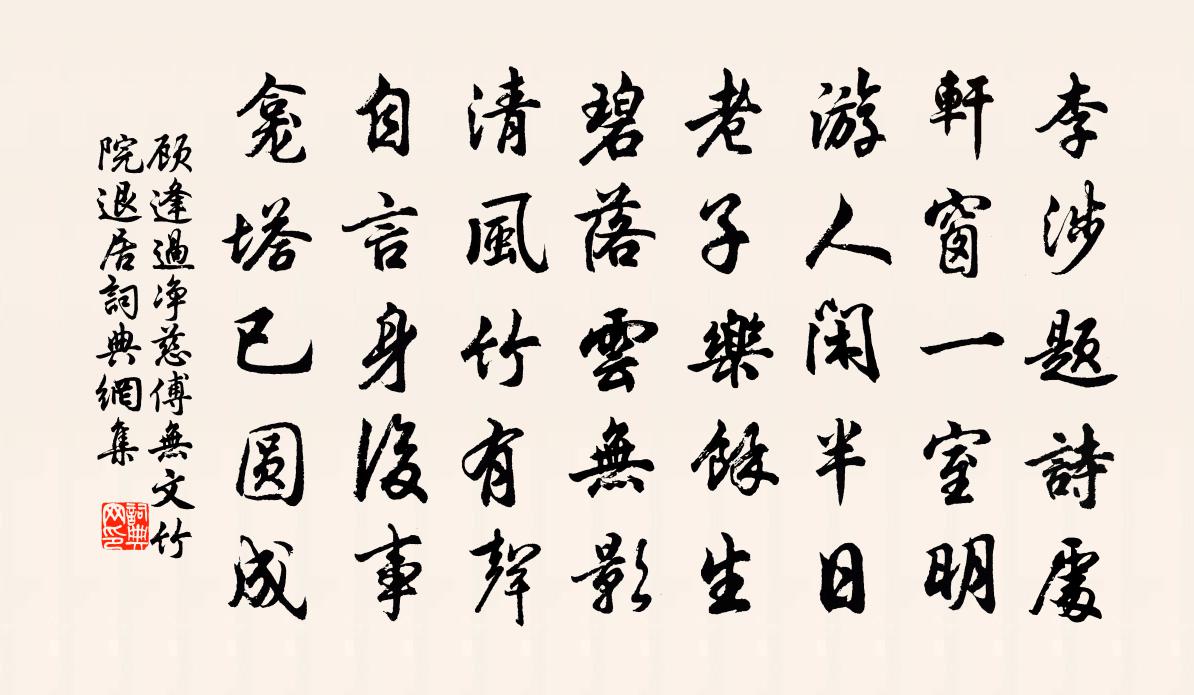 李涉题詩處
軒窗一室明
游人閑半日
老子樂餘生
碧落雲無影
清風竹有聲
自言身後事
龕塔已圆成
顾逢過净慈傅無文竹
院退居詞典網集
詞典
网印